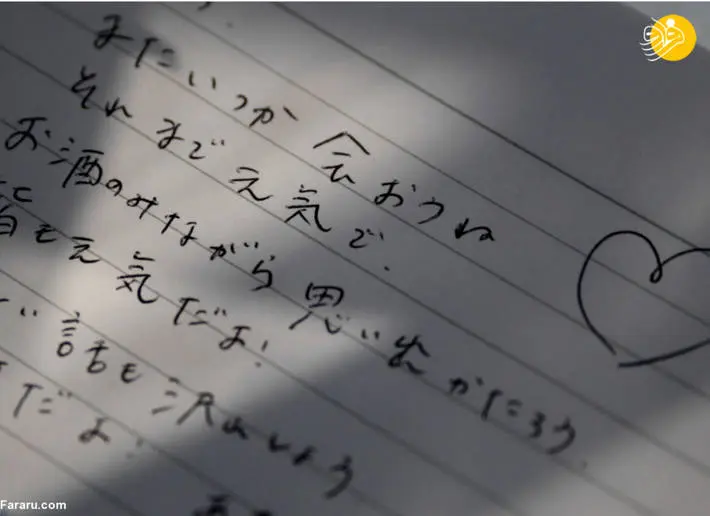 またいつか会おうね
それまで元気で.
お酒のみながら思い出かたろう.
も元気だよ!
話も沢山しよう
だよ!
Fararu.com